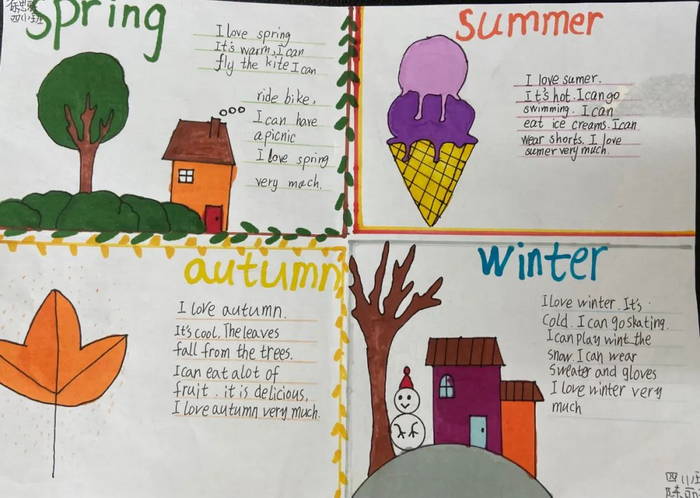 spring
I love spring
It's warm, I can
fly the kite I can
ride bike,
I can have
a picnic
I love spring
very much.
summer
I love sumer.
It's hot. I can go
swimming. I can
eat ice creams. I can
wear shorts. I love
sumer very much.
autumn
I love autumn.
It's cool. The leaves
fall from the trees.
I can eat alot of
fruit. it is delicious.
I love autumn very much.
winter
I love winter. It's
cold. I can go skating.
I can play wint the
snow. I can wear
sweater and gloves
I love winter very
much